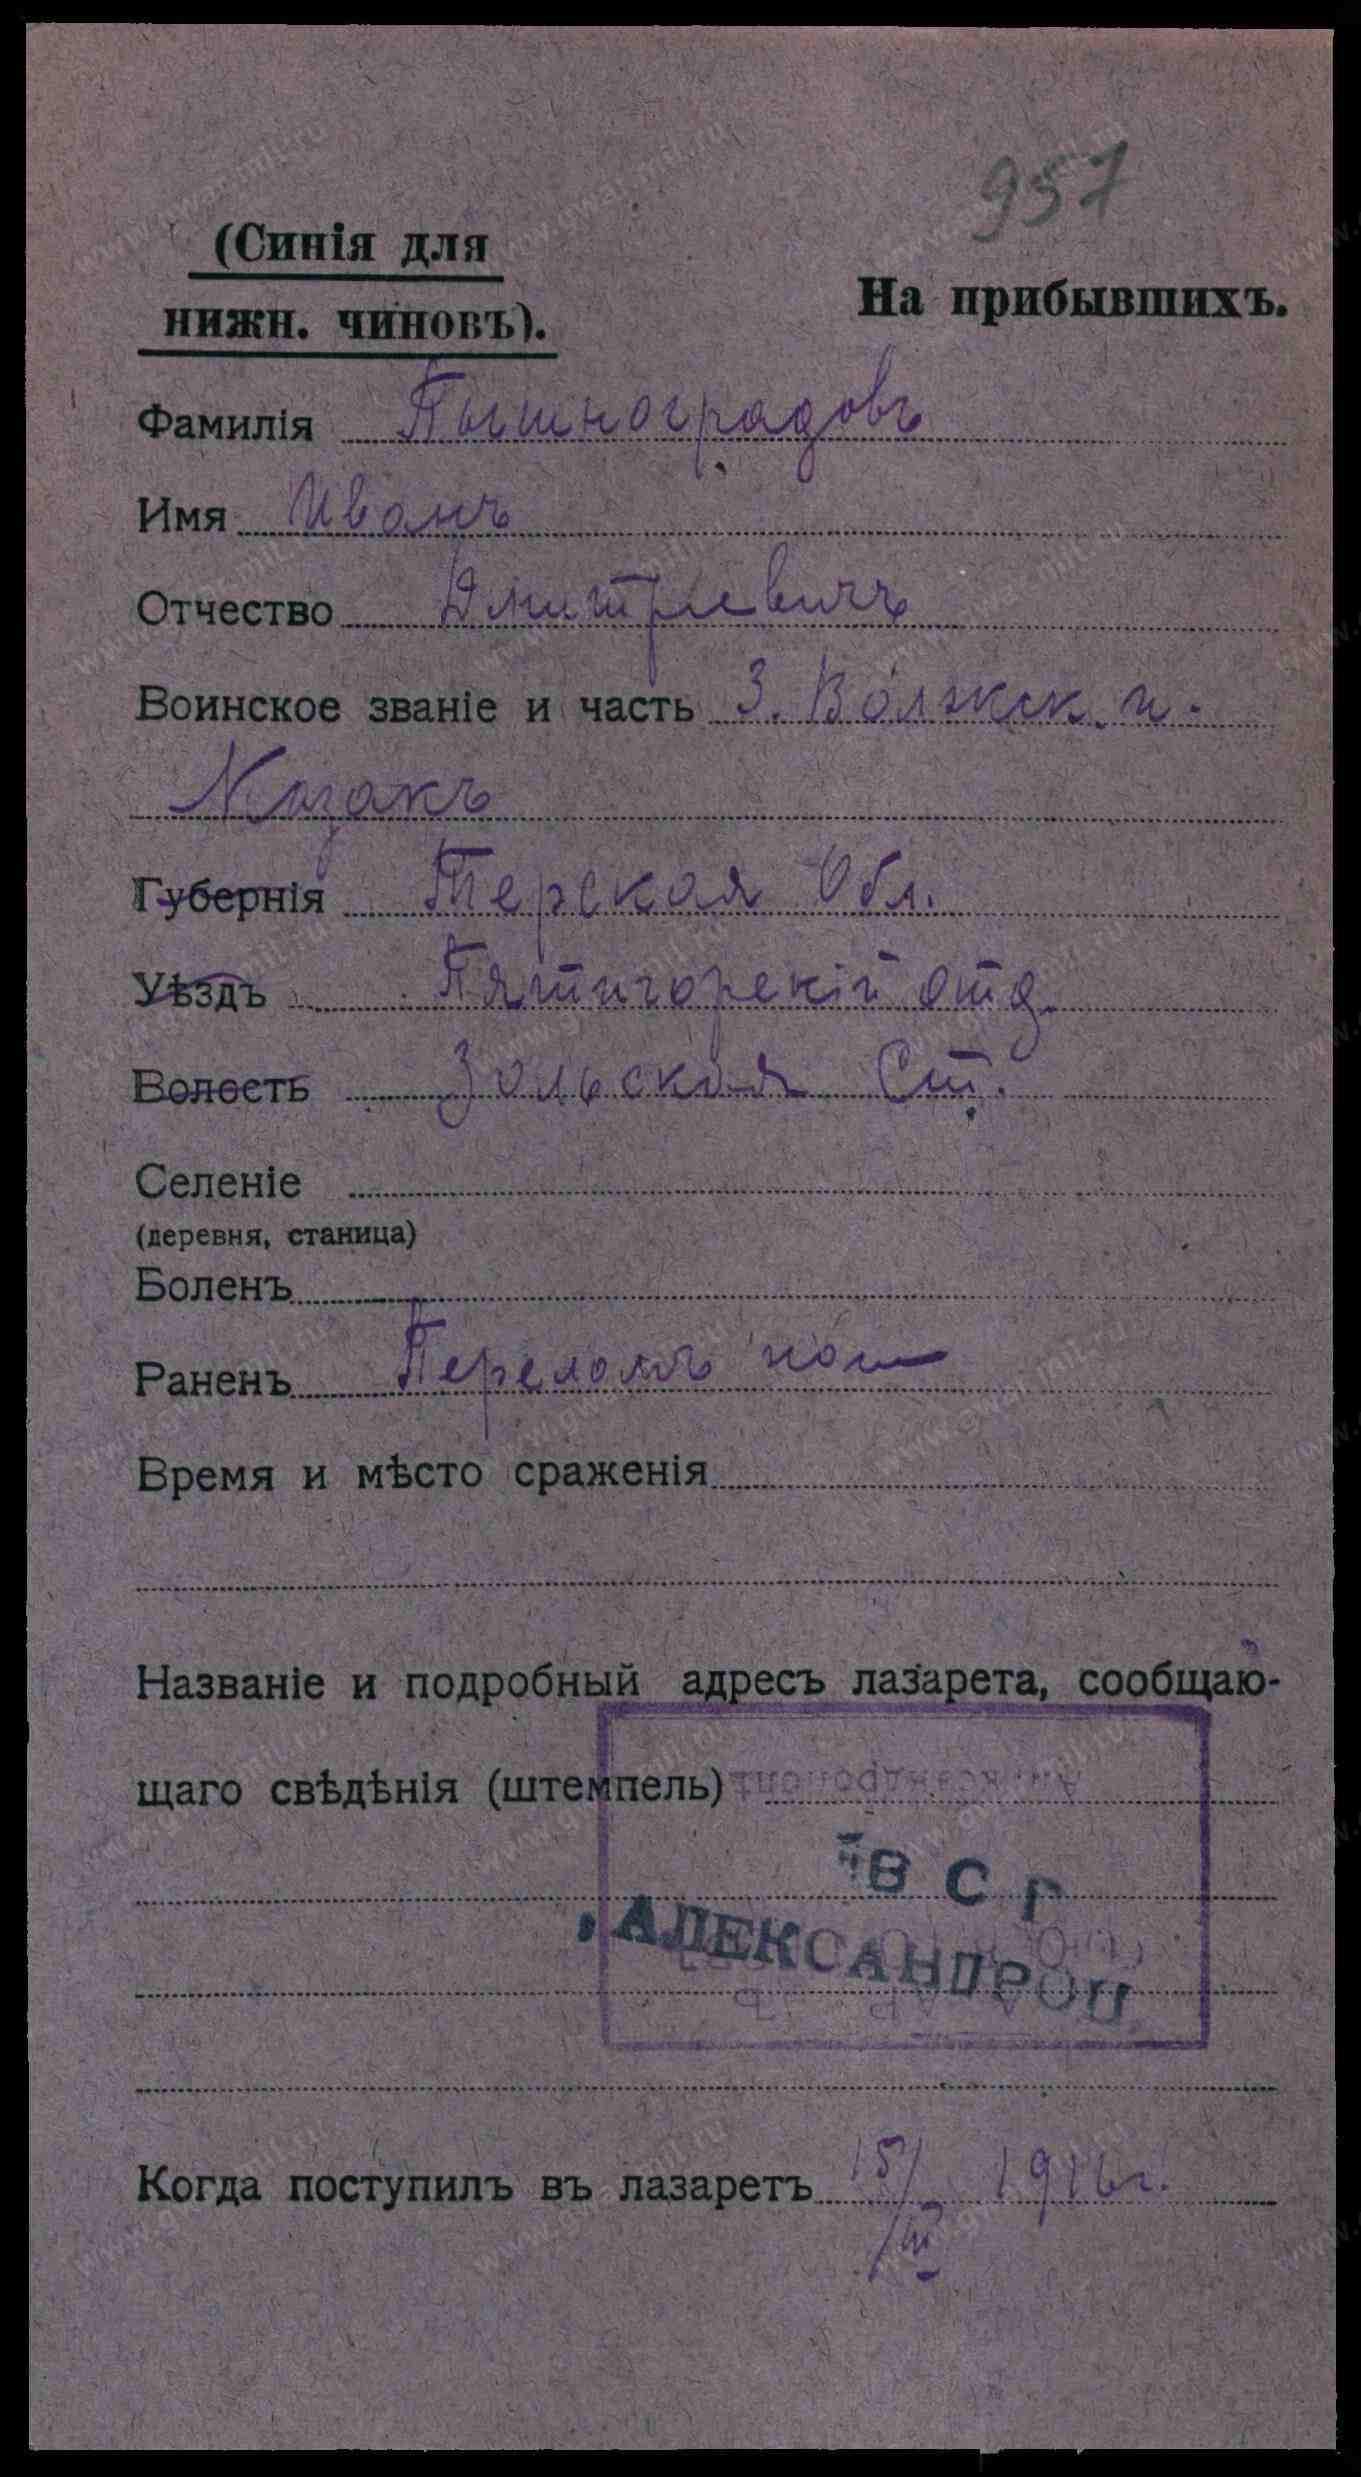 957
(Синія для
нижн. чиновъ).
На прибывшихъ.
Фамилія Пышноградовъ
Имя Иванъ
Отчество Дмитріевичъ
Воинское званіе и часть 3. Волжск. п.
Казакъ
Губернія Терская Обл.
Уѣздъ Пятигорскій отд.
Волость Зольская Ст.
Селеніе
(деревня, станица)
Боленъ
Раненъ Переломъ
Время и мѣсто сраженія
Названіе и подробный адресъ лазарета, сообщаю-
щаго свѣдѣнія (штемпель)
В С Г
АЛЕКСАНДРОП
Когда поступилъ въ лазаретъ 15/III 1916 г.
www.gwar.mil.ru